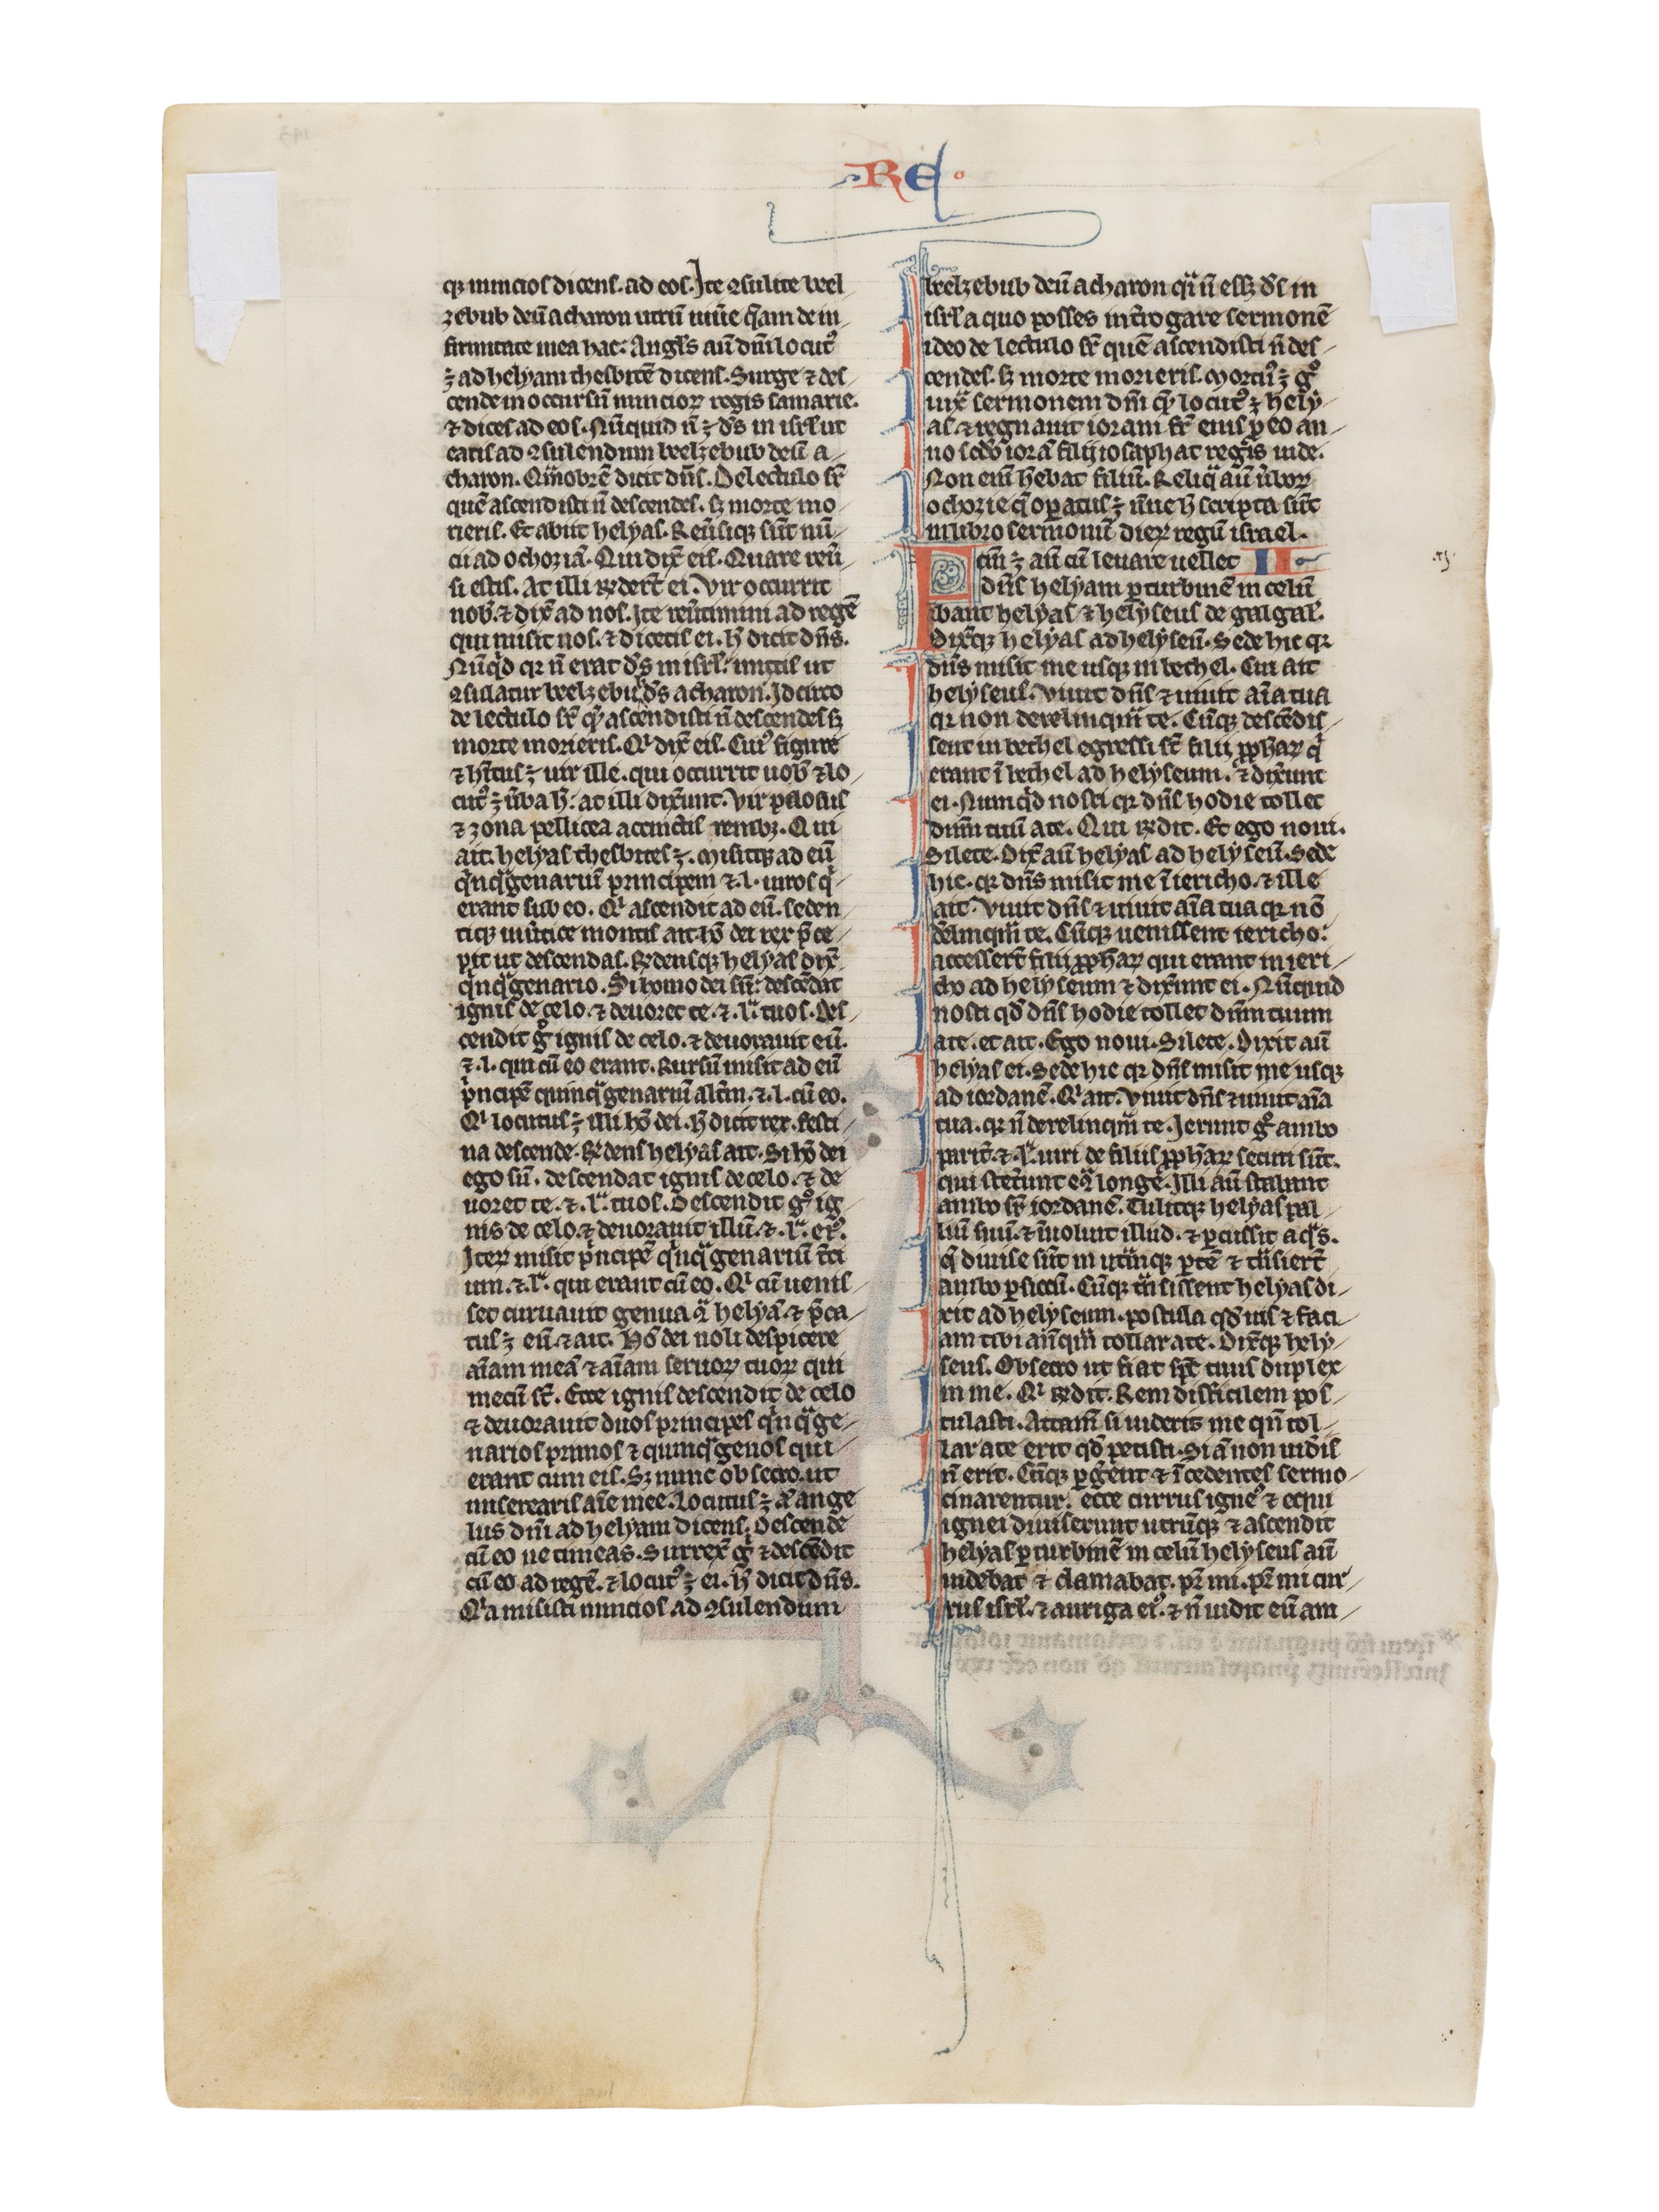 RE
qꝫ nuncios dicens. ad eos. Ite ꝯsulite beel
zebub deū acharon utrū uiuē q̄am de in
firmitate mea hac: Angl̄s au͞t dn̄i locut᷒
ē ad helyam thesbitē dicens. Surge ⁊ des
cende in occursū nuncioꝝ regis samarie.
⁊ dices ad eos. Nūquid n̄ ē ds̄ in isrl̄ ut
eatis ad ꝯsulendum beelzebub deū a
charon. Qm̄obrē dicit dn̄s. De lectulo sr̄
quē ascendisti n̄ descendes. sꝫ morte mo
rieris. Et abiit helyas. Reūsiqꝫ sūt nū
cii ad ochoziā. Qui dix̄ eis. Quare reū
si estis. At illi rn̄dert̄ ei. Vir occurrit
nob̄. ⁊ dix̄ ad nos. Ite reūtimini ad regē
qui misit nos. ⁊ dicetis ei. h̄ dicit dn̄s.
Nūqd̄ qꝛ n̄ erat ds̄ in isrl̄. mittis ut
ꝯsulatur beelzebub ds̄ acharon. Idcirco
de lectulo sr̄ quē ascendisti n̄ descendes sꝫ
morte morieris. Qͥ dix̄ eis. Cui᷒ figure
⁊ hītus ē uir ille. qui occurrit uob̄ ⁊ lo
cut᷒ ē ūba h̄: at illi dix̄unt. Vir pilosus
⁊ zona pellicea accinctis renibꝫ. Qui
ait. helyas thesbites ē. Misitqꝫ ad eū
qͥnqͣgenariū principem ⁊ .l. uiros qͥ
erant sub eo. Qͥ ascendit ad eū. seden
tiqꝫ in ūtice montis ait. hō dei rex p̄ce
pit ut descendas. Rn̄densqꝫ helyas dix̄
qͥnqͣgenario. Si homo dei sū: descēdat
ignis de celo. ⁊ deuoret te. ⁊ .lͣ. tuos. Des
cendit gͦ ignis de celo. ⁊ deuorauit eū.
⁊ .l. qui cū eo erant. Rursū misit ad eū
pͥncipē quinqͣgenariū altm̄. ⁊ .l. cū eo.
Qͥ locutus ē illi hō dei. h̄ dicit rex. festi
na descende. Rn̄dens helyas ait. Si hō dei
ego sū. descendat ignis de celo. ⁊ de
uoret te. ⁊ .lͣ. tuos. Descendit gͦ ig
nis de celo. ⁊ deuorauit illū. ⁊ .lͣ. ei᷒.
Iteꝝ misit pͥncipē qͥnqͣgenariū t̄ci
um. ⁊ .lͣ. qui erant cū eo. Qͥ cū uenis
set curuauit genua ꝯͣ helyā. ⁊ p̄ca
tus ē eū. ⁊ ait. Hō dei noli despicere
aīam meā ⁊ aīam seruoꝝ tuoꝝ qui
mecū st̄. Ecce ignis descendit de celo
⁊ deuorauit duos principes qͥnqͣge
narios primos ⁊ quinqͣgenos qui
erant cum eis. Sꝫ nunc obsecro. ut
miserearis aīe mee. Locutus ē at̄ ange
lus dn̄i ad helyam dicens. Descende
cū eo ne timeas. Surrex̄ gͦ ⁊ descēdit
cū eo ad regē. ⁊ locut᷒ ē ei. h̄ dicit dn̄s.
Qͥa misisti nuncios ad ꝯsulendum
beelzebub deū acharon qͣi n̄ eēt ds̄ in
isrl̄ a quo posses int̄rogare sermonē
ideo de lectulo sr̄ quē ascendisti n̄ des
cendes. sꝫ morte morieris. Mortu᷒ ē gͦ
iuxͣ sermonem dn̄i quē locut᷒ ē hely
as. ⁊ regnauit ioram fr̄ eius ꝑ eo an
no scd̄o iorā filij iosaphat regis iude.
Non eni͞ hēbat filiū. Reliqͣ au͞t ūboꝝ
ochozie q̄ oꝑatus ē n̄ne h̄ scripta sūt
in libro sermonū dieꝝ regū israel.
Fctm̄ ē au͞t cū leuare uellet II
dn̄s helyam ꝑ turbinē in celū
ibant helyas ⁊ helyseus de galgal᷒.
Dix̄qꝫ helyas ad helyseū. Sede hic qꝛ
dn̄s misit me usqꝫ in bethel. Cui ait
helyseus. Viuit dn̄s ⁊ uiuit aīa tua
qꝛ non derelinquā te. Cūqꝫ descēdis
sent in bethel egressi st̄ filii ꝓph̄aꝝ qͥ
erant ī bethel ad helyseum. ⁊ dix̄unt
ei. Numqͥd nosti qꝛ dn̄s hodie tollet
dn̄m tuū a te. Qui rn̄dit. Et ego noui.
Silete. Dix̄ au͞t helyas ad helyseū. Sede
hic. qꝛ dn̄s misit me ī iericho. ⁊ ille
ait. Viuit dn̄s ⁊ uiuit aīa tua qꝛ nō
delinquā te. Cūqꝫ uenissent iericho:
accessert̄ filij ꝓph̄aꝝ qui erant in ieri
cho ad helyseum ⁊ dix̄unt ei. Nūquid
nosti qd̄ dn̄s hodie tollet dn̄m tuum
a te. et ait. Ego noui. Silete. Dixit au͞t
helyas ei. Sede hic qꝛ dn̄s misit me usqꝫ
ad iordanē. Qͥ ait. Viuit dn̄s ⁊ uiuit aīa
tua. qꝛ n̄ derelinquā te. Ierunt gͦ ambo
parit̄. ⁊ .lͣ. uiri de filiis ꝓph̄aꝝ secuti sūt.
qui stet̄unt eͨ longe. Illi au͞t stabant
ambo sr̄ iordanē. Tulitqꝫ helyas pal
liū suū. ⁊ īuoluit illud. ⁊ ꝑcussit aqͣs.
q̄ diuise sūt in utͣnqꝫ ꝑtē ⁊ tͣnsiert̄
ambo ꝑ siccū. Cūqꝫ tͣnsissent helyas di
xit ad helyseum. postula qd̄ uis ⁊ faci
am tibi an̄qͣm tollar a te. Dix̄qꝫ hely
seus. Obsecro ut fiat sp̄c tuus duplex
in me. Qͥ rn̄dit. Rem difficilem pos
tulasti. Attam̄ si uideris me qn̄ tol
lar a te erit qd̄ petisti. Si at̄ non uid̄is
n̄ erit. Cūqꝫ ꝑgent ⁊ īcedentes sermo
cinarentur. ecce currus igne᷒ ⁊ equi
ignei diuiserunt utrūqꝫ ⁊ ascendit
helyas ꝑ turbinē in celū helyseus au͞t
uidebat ⁊ clamabat. pr̄ mi. pr̄ mi cur
rus isrl̄. ⁊ auriga ei᷒. ⁊ n̄ uidit eū am